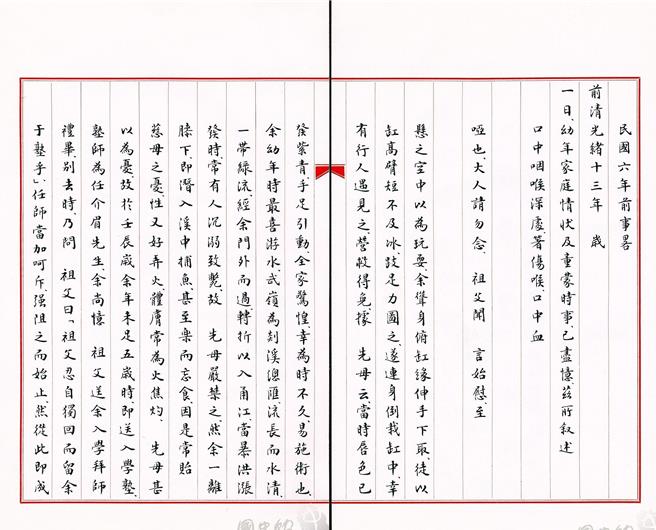 民國六年前事畧
前清光緒十三年　歲
一日、幼年家庭情狀及童蒙時事、已盡憶茲所叙述
口中咽喉深處箸傷喉、口中血
啞也、大人請勿念、祖父聞　言始慰、至
懸之空中以為玩耍余聳身俯缸緣伸手下取徒以
缸高臂短不及冰、跂足力圖之、遂連身倒栽缸中幸
有行人遇見之、營救得免據　先母云、當時唇色已
發紫青、手足引動全家驚惶、幸為時不久、易施術也、
余幼年時最喜游水、武嶺為剡溪總匯、流長而水清、
一帶綠流、經余門外而過、轉折以入甬江、當暴洪漲
發時、常有人沉溺致斃、故　先母嚴禁之、然余一離
膝下、即潛入溪中捕魚、甚至樂而忘食、因是常貽
慈母之憂、性又好弄火、體膚常為火焦灼、　先母甚
以為憂、故於壬辰歲余年未足五歲時即送入學塾、
塾師為任介眉先生、余尚憶　祖父送余入學拜師
禮畢、別去時、乃問　祖父曰、「祖父忍自獨回而留余
于塾乎」、任師當加呵斥、强阻之而始止、然從此即成
國史館
國史館